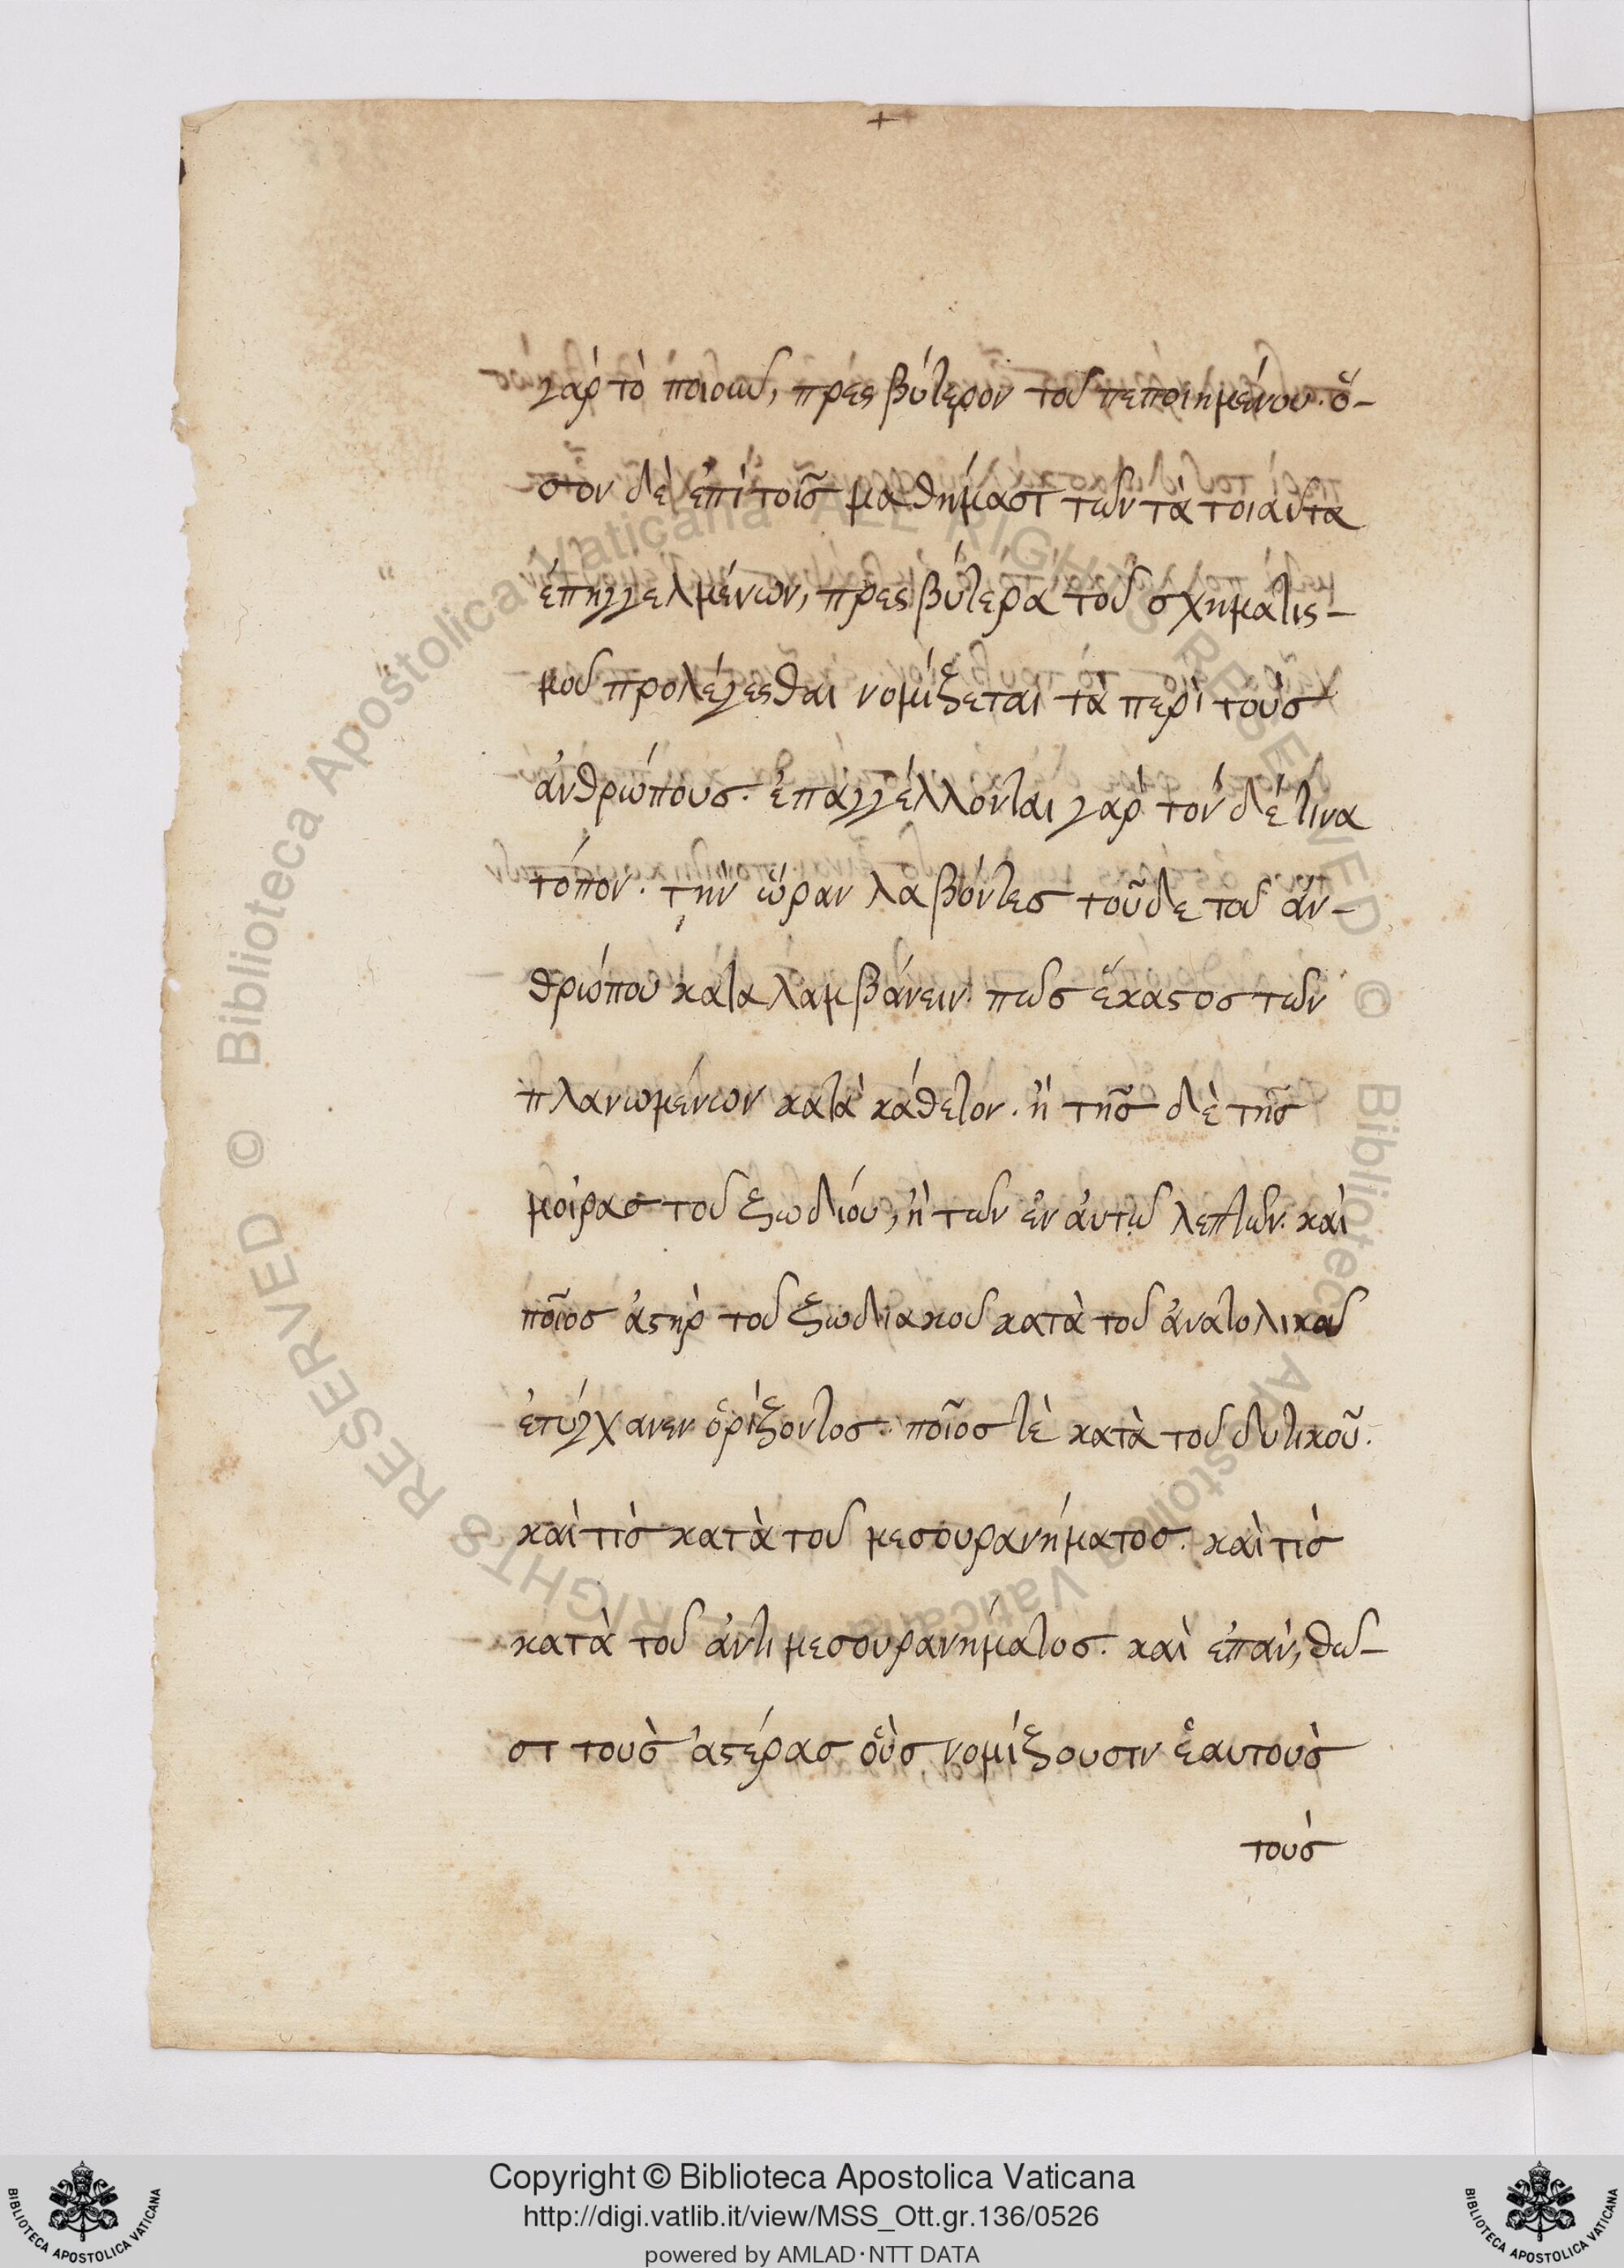 +
γὰρ τὸ ποιοῦν, πρεσβύτερον τοῦ πεποιημένου· ὅ-
σον δὲ ἐπὶ τοῖς μαθήμασι τῶν τὰ τοιαῦτα
ἐπηγγελμένων, πρεσβύτερα τοῦ σχηματισ-
μοῦ προλέγεσθαι νομίζεται τὰ περὶ τοὺς
ἀνθρώπους. ἐπαγγέλλονται γὰρ τὸν δέ τινα
τόπον. τὴν ὥραν λαβόντες τοῦδε τοῦ ἀν-
θρώπου καταλαμβάνειν· πῶς ἕκαστος τῶν
πλανωμένων κατὰ κάθετον. ἢ τῆς δὲ τῆς
μοίρας τοῦ ζωδίου, ἢ τῶν ἐν ἀυτῷ λεπτῶν. καὶ
ποῖος ἀστὴρ τοῦ ζωδιακοῦ κατὰ τοῦ ἀνατολικοῦ
ἐτύγχανεν ὁρίζοντος· ποῖος τὲ κατὰ τοῦ δυτικοῦ.
καὶ τίς κατὰ τοῦ μεσουρανήματος. καὶ τίς
κατὰ τοῦ ἀντιμεσουρανήματος. καὶ ἐπὰν, θῶ-
σι τοὺς ἀστέρας οὓς νομίζουσιν ἑαυτοὺς
τοὺς
© Biblioteca Apostolica Vaticana ALL RIGHTS RESERVED
© Biblioteca Apostolica Vaticana ALL RIGHTS RESERVED
Copyright © Biblioteca Apostolica Vaticana
http://digi.vatlib.it/view/MSS_Ott.gr.136/0526
powered by AMLAD·NTT DATA
BIBLIOTECA APOSTOLICA VATICANA
BIBLIOTECA APOSTOLICA VATICANA